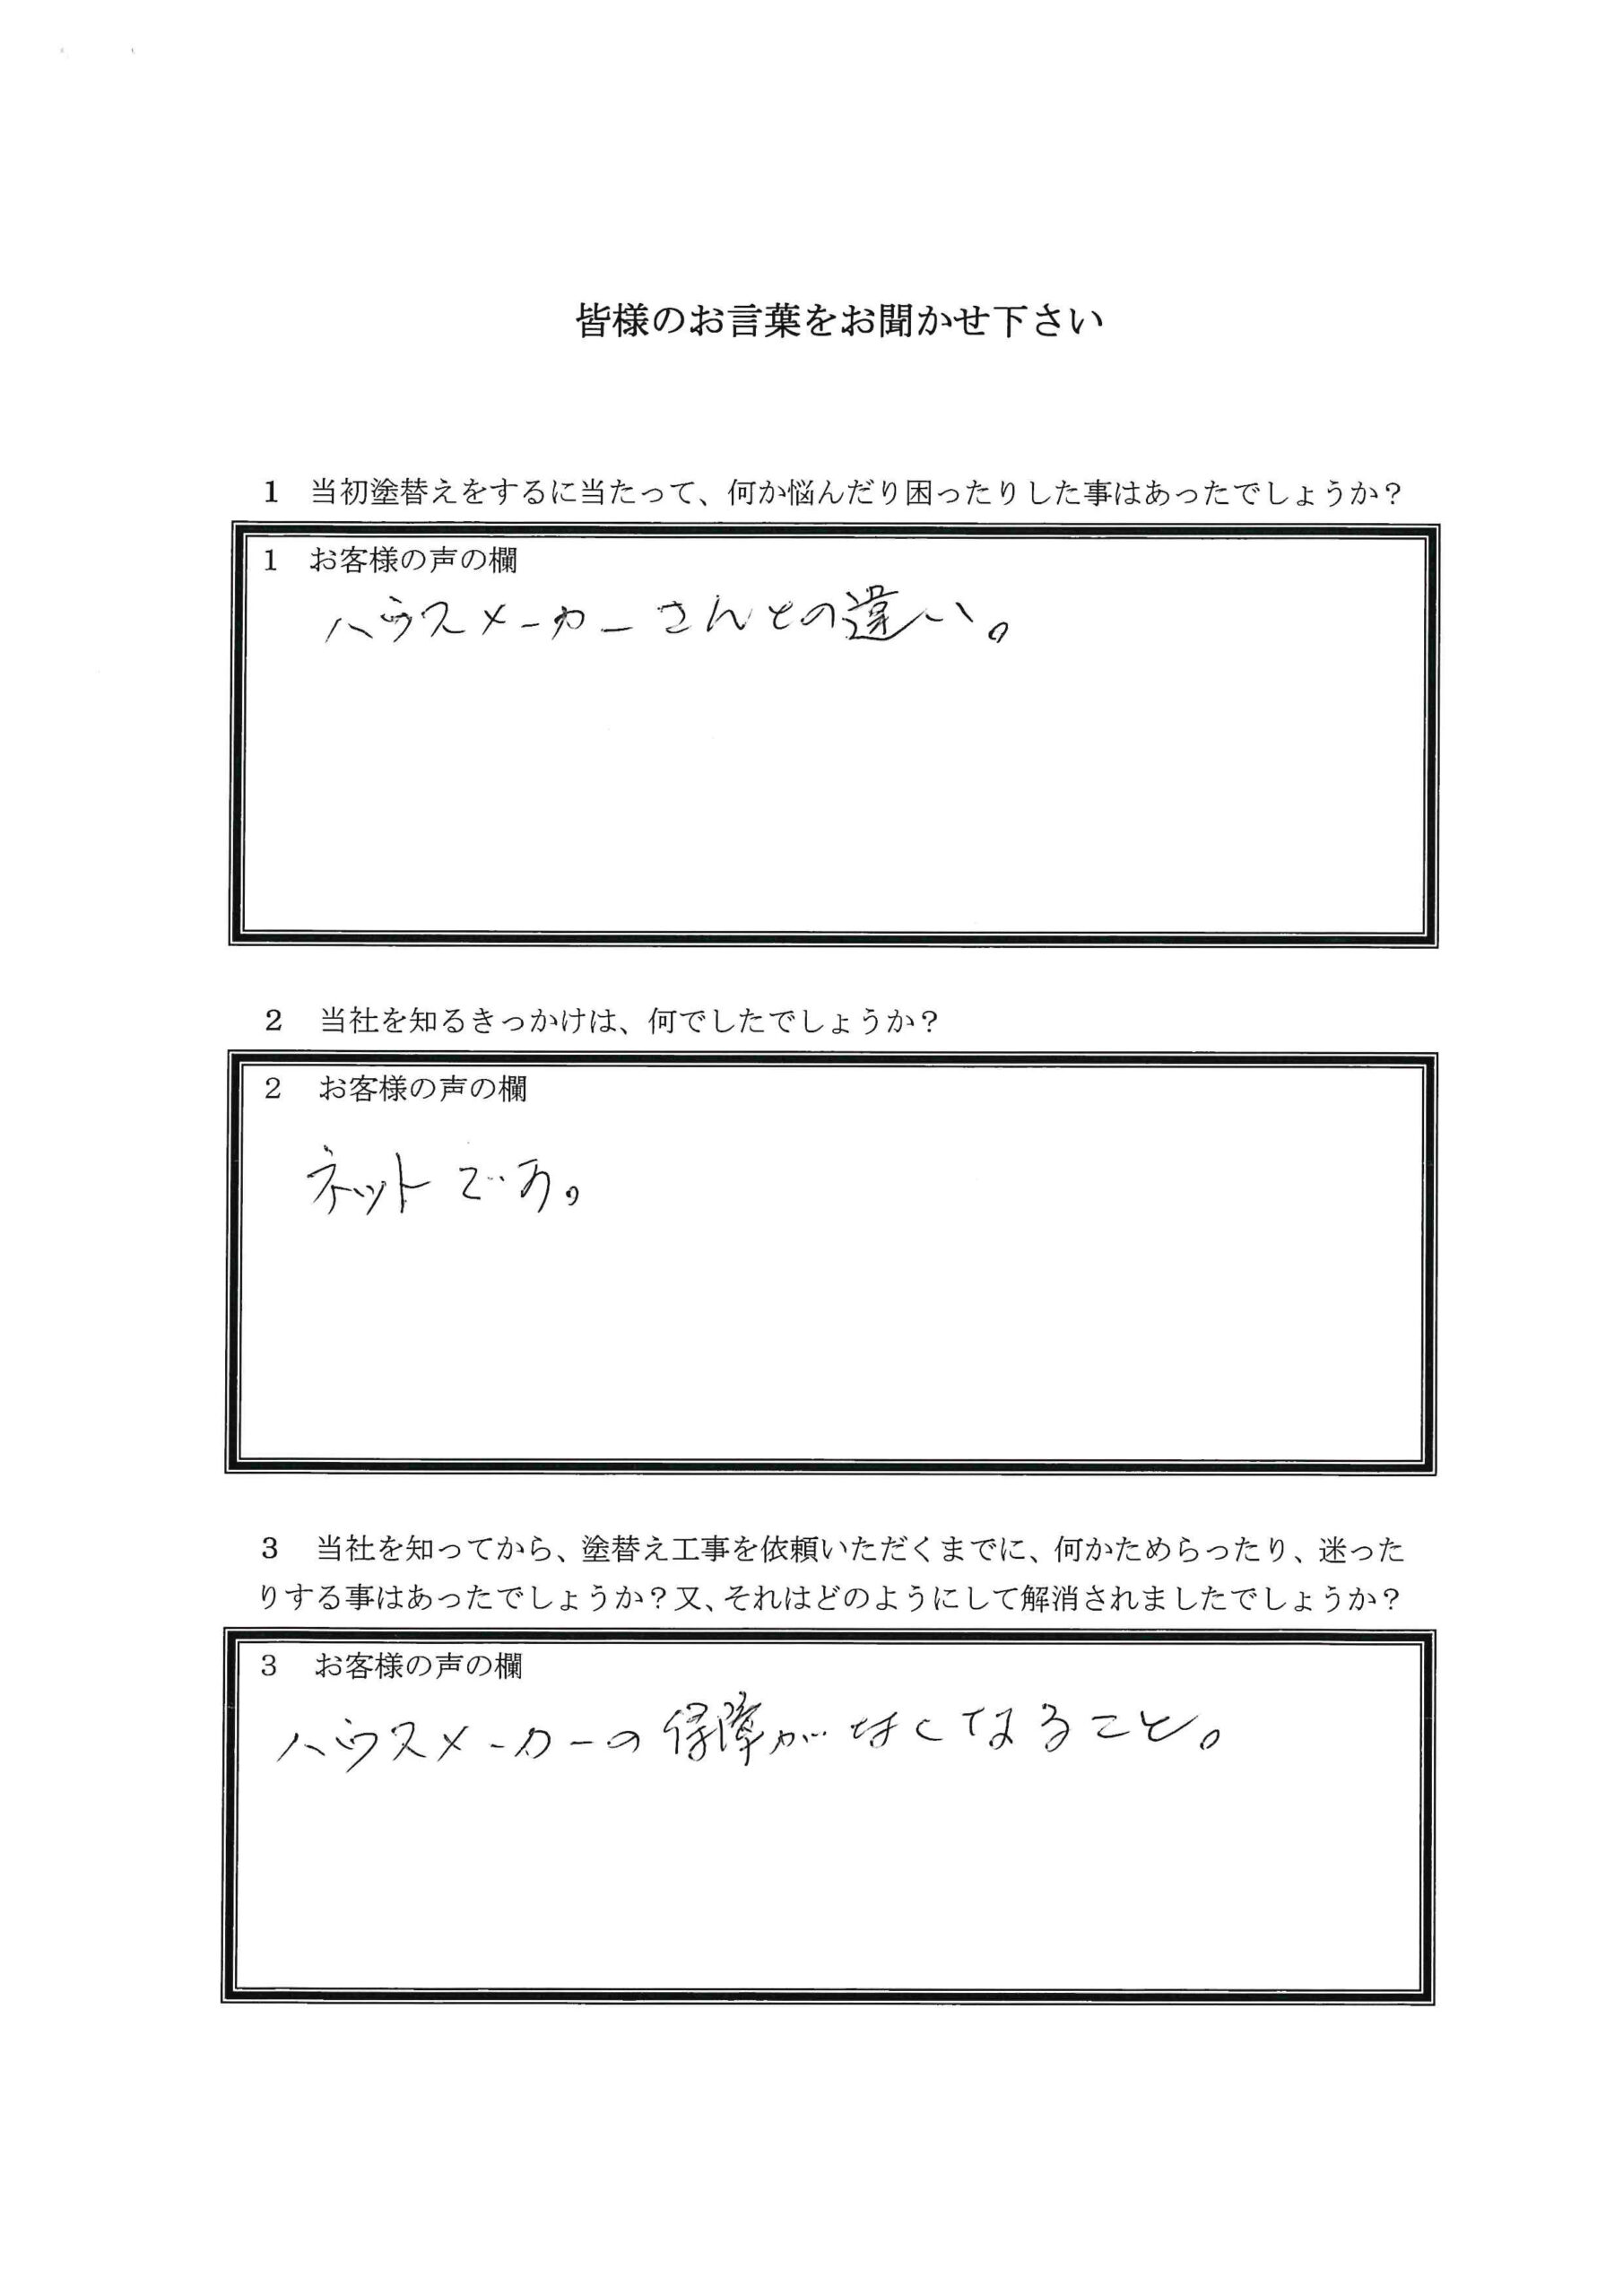 皆様のお言葉をお聞かせ下さい
1 当初塗替えをするに当たって、何か悩んだり困ったりした事はあったでしょうか？
1 お客様の声の欄
ハウスメーカーさんとの違い。
2 当社を知るきっかけは、何でしたでしょうか？
2 お客様の声の欄
ネットです。
3 当社を知ってから、塗替え工事を依頼いただくまでに、何かためらったり、迷った
りする事はあったでしょうか？又、それはどのようにして解消されましたでしょうか？
3 お客様の声の欄
ハウスメーカーの保障がなくなること。